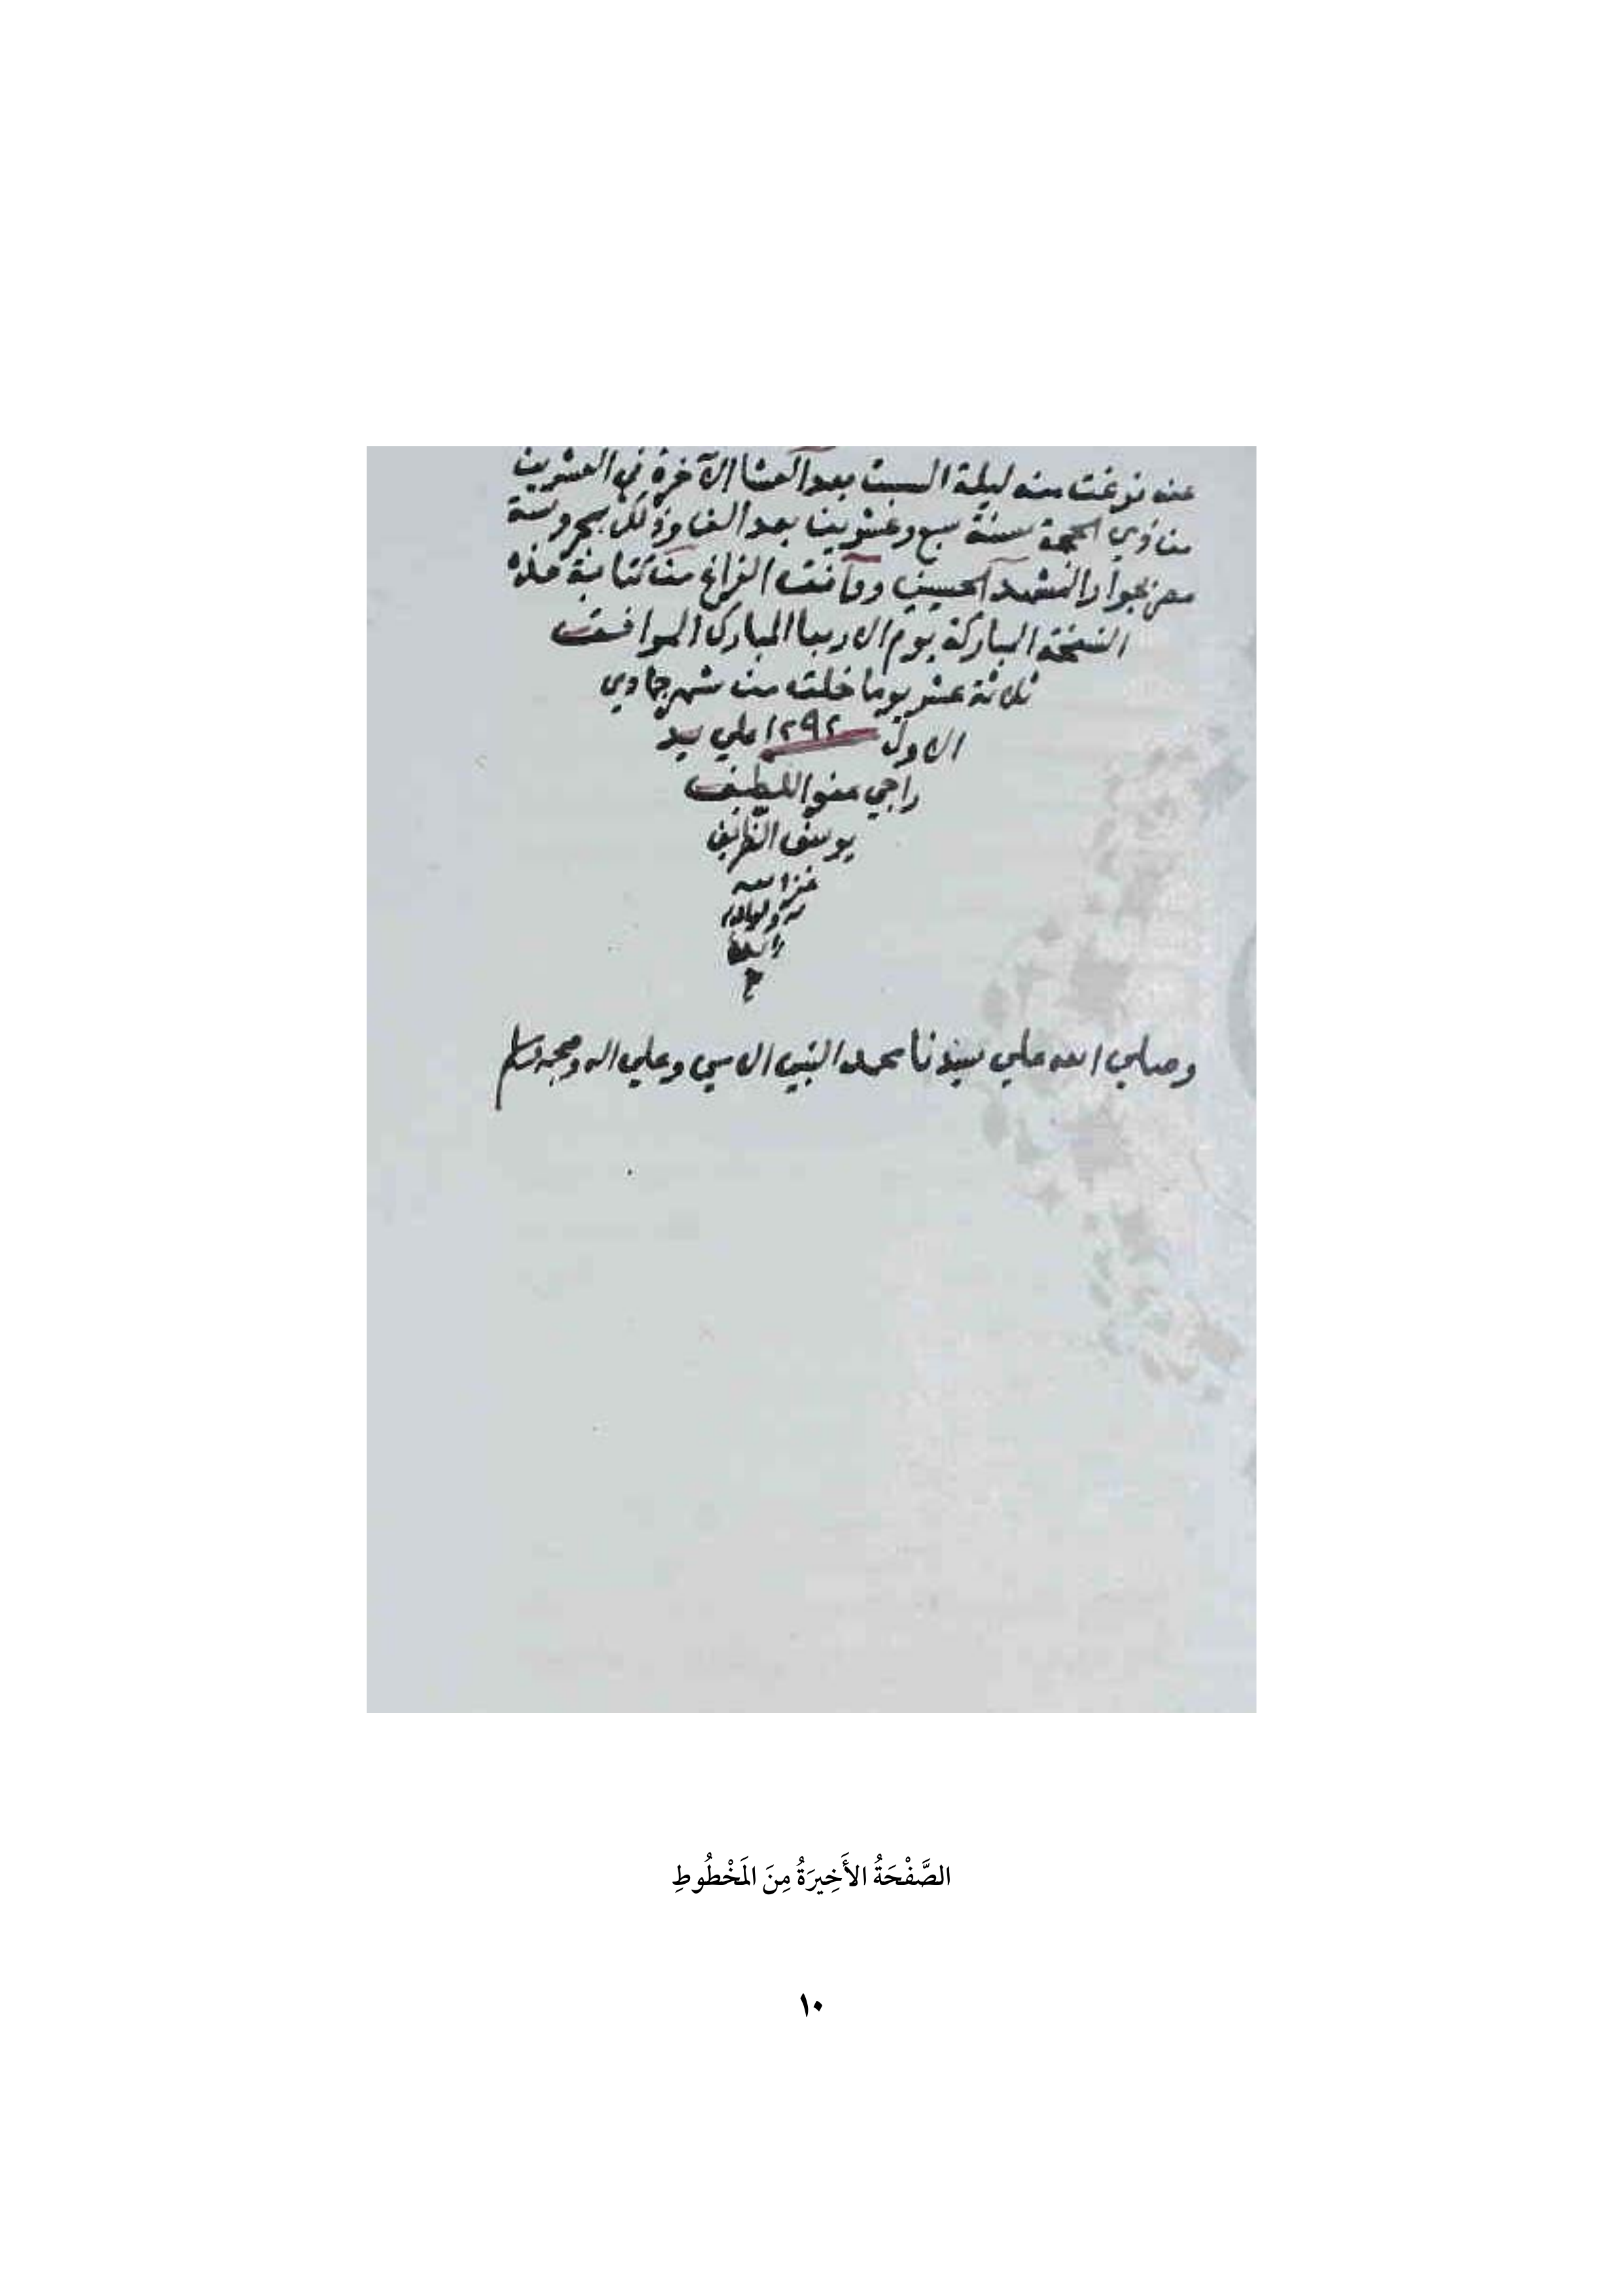 عنه فرغت منه ليلة السبت بعد العشا الآخرة في العشرين
من ذي الحجة سنة سبع وعشرين بعد الف وذلك بمحروسة
مصر بجوار المشهد الحسيني وكانت الفراغ من كتابة هذه
النسخة المباركة يوم الاربعا المبارك الموافق
ثلاثة عشر يوما خلت من شهر جمادي
الاول ١٢٩٢ علي يد
راجي عفو اللطيف
يوسف الظريف
غفر الله
له ولوالديه
وصلي الله علي سيدنا محمد النبي الامي وعلي اله وصحبه وسلم
الصَّفْحَةُ الأَخِيرَةُ مِنَ المَخْطُوطِ
١٠